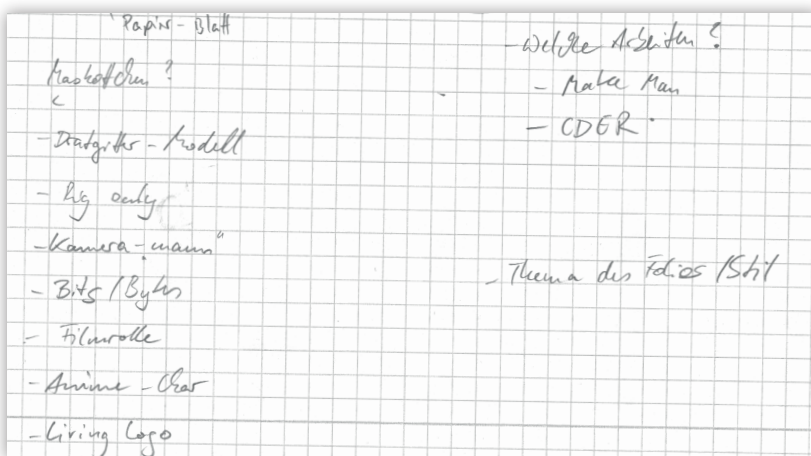 Papier-Blatt
Maskottchen?
- Dratgitter-Modell
- Rig only
- Kamera-mann"
- Bits/Bytes
- Filmrolle
- Anime-Char
- Living Logo
- Welche Arbeiten?
- Make Man
- CDER
- Thema des Folios/Stil